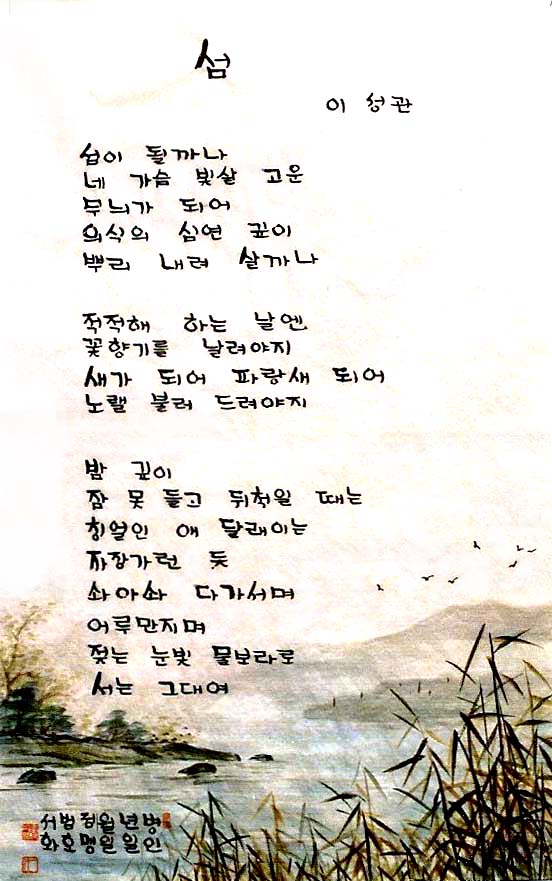 섬
이 성관
섬이 될까나
네 가슴 빛살 고운
무늬가 되어
의식의 심연 깊이
뿌리 내려 살까나
적적해 하는 날엔
꽃향기를 날려야지
새가 되어 파랑새 되어
노랠 불러 드려야지
밤 깊이
잠 못 들고 뒤척일 때는
칭얼인 애 달래이는
자장가런 듯
솨아솨 다가서며
어루만지며
젖는 눈빛 물보라로
서는 그대여
서범정월년병
화호맹일일인